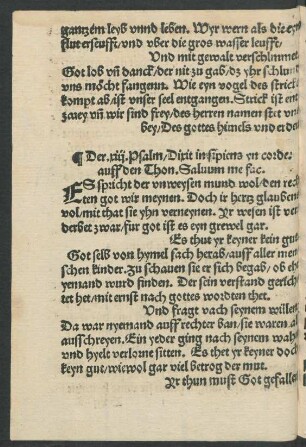 gantzem leyb vnnd leben. Wyr wern als die eyn
flut erseufft/vnd vber die gros wasser leufft/
Vnd mit gewalt verschlimmet
Got lob vñ danck/der nit zu gab/dz yhr schlund
vns möcht fangenn. Wie eyn vogel des stricks
kompt ab/ist vnser seel entgangen. Strick ist ent
zwey vñ wir sind frey/des herren namen stet vns
bey/Des gottes himels vnd erden
¶ Der .xiij. Psalm/Dixit insipiens yn corde:
auff den Thon. Saluum me fac.
ES spricht der vnweysen mund wol/den rech
ten got wir meynen. Doch ist hertz glaubens
vol/mit that sie yhn verneynen. Yr wesen ist ver
derbet zwar/fur got ist es eyn grewel gar.
Es thut yr keyner kein gut
Got selb von hymel sach herab/auff aller men
schen kinder. Zu schauen sie er sich begab/ob ehr
yemand wurd finden. Der sein verstand gerich
tet het/mit ernst nach gottes worden thet.
Vnd fragt nach seynem willen
Da war nyemand auff rechter ban/sie waren al
ausschreyen. Ein yeder ging nach seynem wahn
vnd hyelt verlorne sitten. Es thet yr keyner doch
keyn gut/wiewol gar viel betrog der mut.
Yr thun must Got gefallen